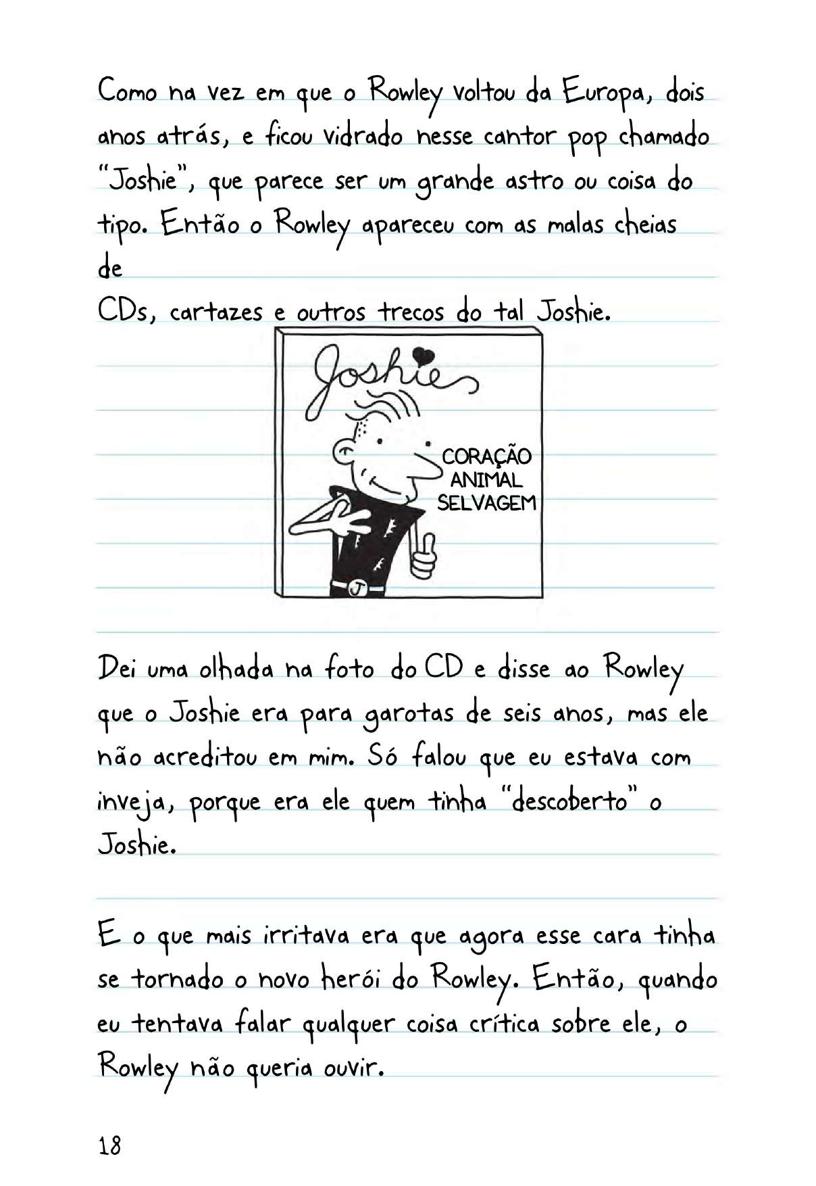 Como na vez em que o Rowley voltou da Europa, dois
anos atrás, e ficou vidrado nesse cantor pop chamado
"Joshie", que parece ser um grande astro ou coisa do
tipo. Então o Rowley apareceu com as malas cheias
de
CDs, cartazes e outros trecos do tal Joshie.
Joshie
CORAÇÃO
ANIMAL
SELVAGEM
J
Dei uma olhada na foto do CD e disse ao Rowley
que o Joshie era para garotas de seis anos, mas ele
não acreditou em mim. Só falou que eu estava com
inveja, porque era ele quem tinha "descoberto" o
Joshie.
E o que mais irritava era que agora esse cara tinha
se tornado o novo herói do Rowley. Então, quando
eu tentava falar qualquer coisa crítica sobre ele, o
Rowley não queria ouvir.
18